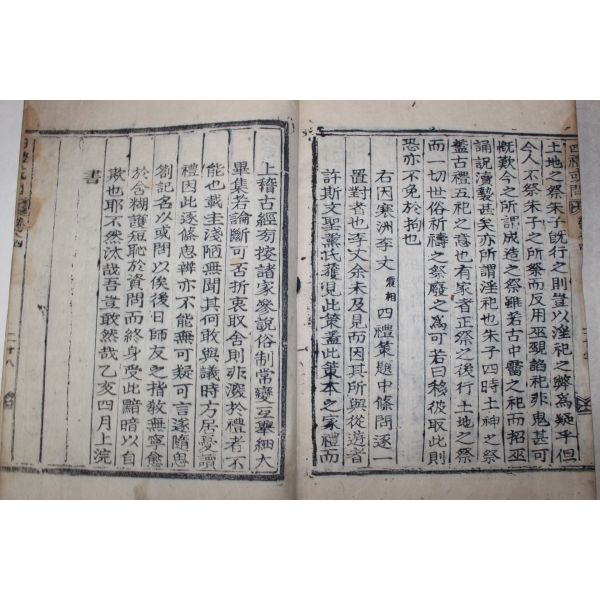 土地之祭朱子旣行之則豈以淫祀之弊爲疑乎但
今人不祭朱子之所祭而反用巫覡諂祀非鬼甚可
慨歎今之所謂成造之祭雖若古中霤之祀而招巫
誦說瀆褻甚矣亦所謂淫祀也朱子四時土神之祭
蓋古禮五祀之意也有家者正祭之後行土地之祭
而一切世俗祈禱之祭廢之爲可若曰移彼取此則
恐亦不免於拘也
右因寒洲李丈震相四禮策題中條問逐一
置對者也李丈余未及見而因其所與從遊者
許斯文聖薰氏獲見此策蓋此策本之家禮而
上稽古經旁援諸家參說俗制常變互擧細大
畢集若論斷可否折衷取舍則非深於禮者不
能也載圭淺陋無聞其何敢與議時方居憂讀
禮因此逐條思辨亦不能無可疑可言遂隨思
箚記名以或問以俟後日師友之指敎無寧愈
於含糊護短恥於資問而終身受此黯暗以自
欺也耶不然汰哉吾豈敢然哉乙亥四月上浣
書
二十八